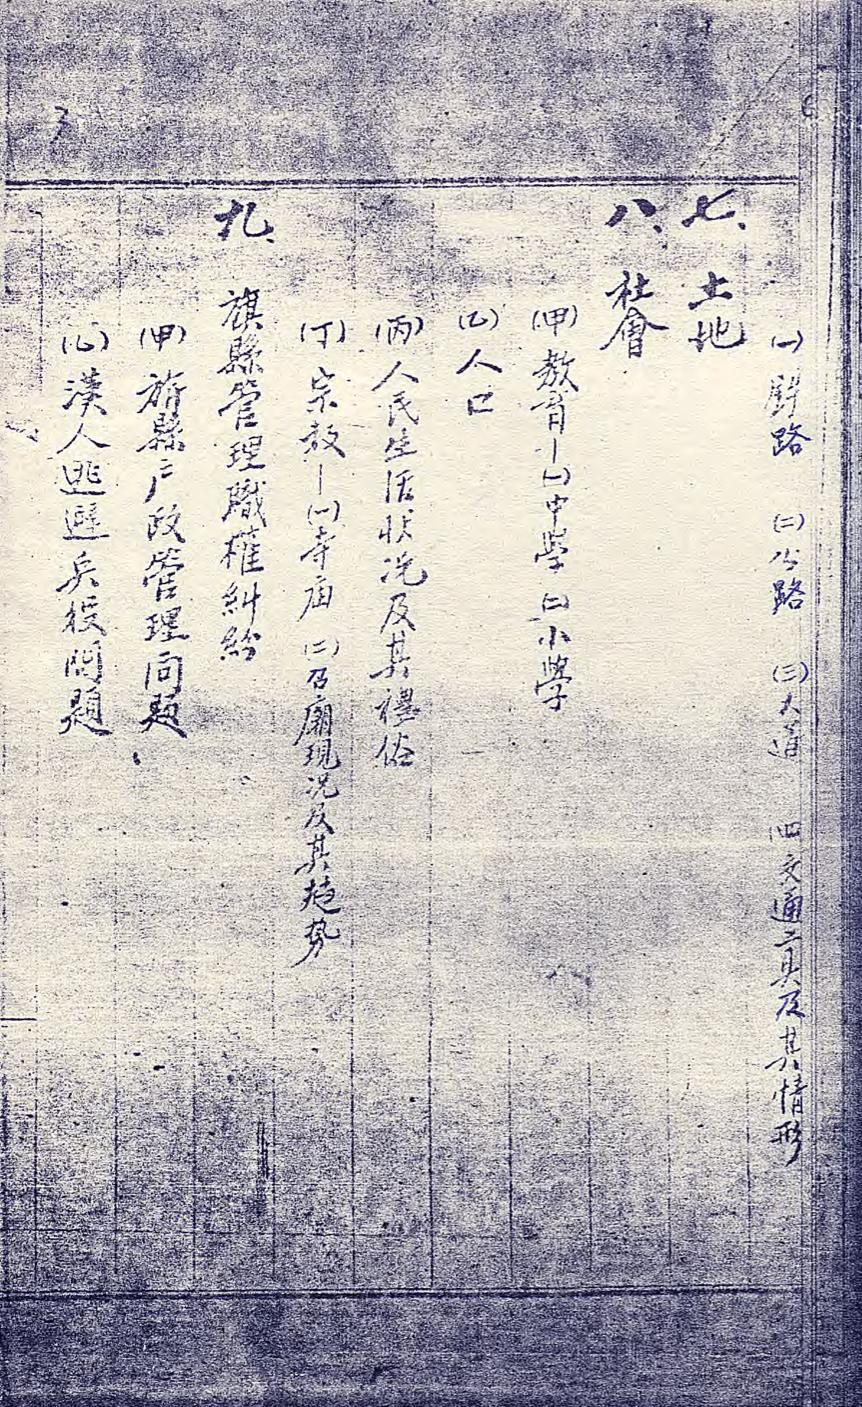 (一)鉄路 (二)公路 (三)大道 (四)交通工具及其情形
七、土地
八、社會
(甲)教育—(一)中學 (二)小學
(乙)人口
(丙)人民生活狀况及其禮俗
(丁)宗教—(一)寺庙 (二)召廟現况及其趋势
九、旗縣管理職權糾紛
(甲)旂縣户政管理问题
(乙)漢人逃避兵役問題